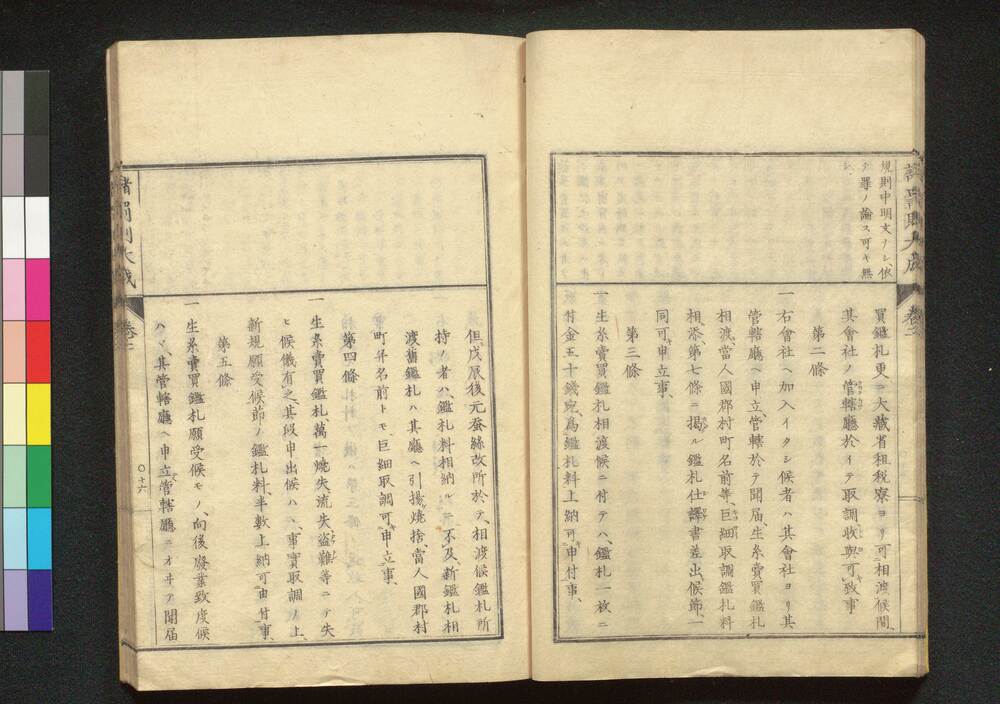 規則中明文ナシ、依
テ罪ノ論ス可キ無
シ、
買鑑札更ニ大藏省租税寮ヨリ可相渡候間、
其會社ノ管轄廳於イテ取調收與可致事
第二條
一右會社ヘ加入イタシ候者ハ其會社ヨリ其
管轄廳ヘ申立管轄於テ聞届、生糸賣買鑑札
相渡、當人國郡村町名前等、巨細取調鑑札料
相添、第七條ニ掲ル鑑札仕譯書差出候節、一
同可申立事、
第三條
一生糸賣買鑑札相渡候ニ付テハ、鑑札一枚ニ
付金五十錢宛、爲鑑札料上納可申付事、
但戊辰後元蚕絲改所於テ、相渡候鑑札所
持ノ者ハ、鑑札料相納ルニ不及、新鑑札相
渡舊鑑札ハ其廳ヘ引揚燒捨、當人國郡村
町并名前トモ、巨細取調可申立事、
第四條
一生糸賣買鑑札萬一燒失流失盗難等ニテ失
ヒ候儀有之、其段申出候ハヽ、事實取調ノ上、
新規願受候節ノ鑑札料、半數上納可申付事、
第五條
一生糸賣買鑑札願受候モノ、向後廢業致度候
ハヽ、其管轄廳ヘ申立、管轄廳ニオヰテ聞届
諸罰則大成
卷二
〇十六